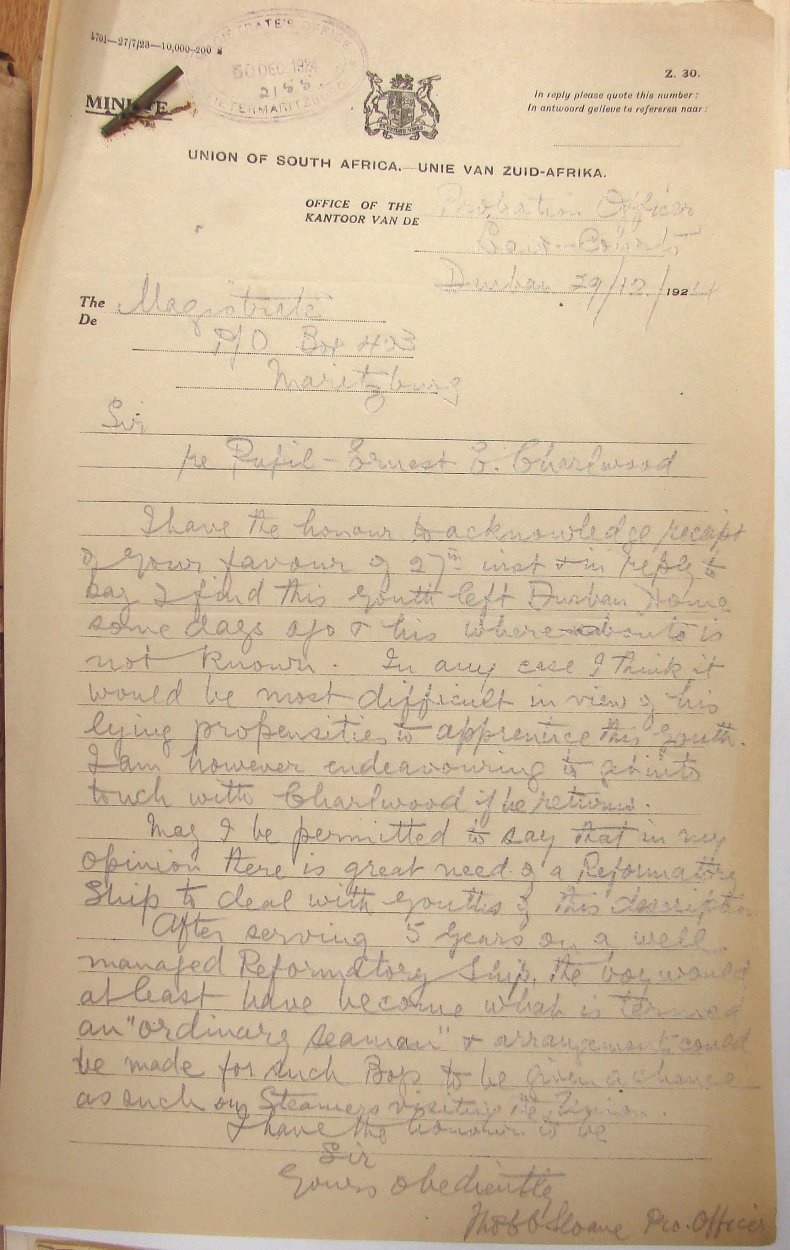 5701—27/7/23—10,000-200
MAGISTRATE'S OFFICE
30 DEC 1924
2188
PIETERMARITZBURG
Z. 30.
MINUTE
In reply please quote this number:
In antwoord gelieve te refereren naar:
UNION OF SOUTH AFRICA.—UNIE VAN ZUID-AFRIKA.
OFFICE OF THE Probation Officer
KANTOOR VAN DE
Law Courts
Durban 29/12/1924
The Magistrate
De
P/O Box 423
Maritzburg
Sir
re Pupil - Ernest E. Charlwood
I have the honour to acknowledge receipt
of your favour of 27th inst & in reply to
say I find this youth left Durban some
some days ago & his whereabouts is
not known. In any case I think it
would be most difficult in view of his
lying propensities to apprentice this youth.
I am however endeavouring to get into
touch with Charlwood if he returns.
May I be permitted to say that in my
opinion there is great need of a Reformatory
Ship to deal with youths of this description
After serving 5 years on a well
managed Reformatory Ship, the boy would
at least have become what is termed
an "ordinary seaman" & arrangements could
be made for such Boys to be given a chance
as such on Steamers visiting the Union.
I have the honour to be
Sir
Yours obediently
Sloane Pro. Officer